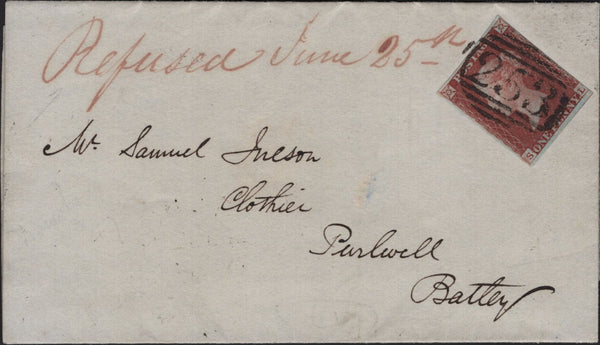 Refused June 25th
POSTAGE
ONE PENNY
S L
253
Mr. Samuel Juleson
Clothier
Purlwell
Batley